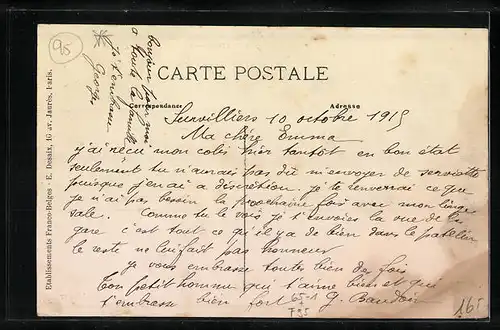 95
bonjour pour moi
a toute la famille
je t'embrasse
Georges
CARTE POSTALE
Correspondance
Adresse
Survilliers 10 octobre 1915
Ma chère Emma
j'ai reçu mon colis hier tantôt en bon état
seulement tu n'aurais pas dû m'envoyer de serviette
puisque j'en ai a discrétion. je te renverrai ce que
je n'ai pas besoin la prochaine fois avec mon linge
sale. Comme tu le vois je t'envoies la vue de la
gare c'est tout ce qu'il y a de bien dans le patelin
le reste ne lui fait pas honneur
je vous embrasse toutes bien des fois
Ton petit homme qui t'aime bien et qui
t'embrasse bien fort G. Baudoin
165
Etablissements Franco-Belges - E. Desaix, 16 av. Jaurès. Paris.